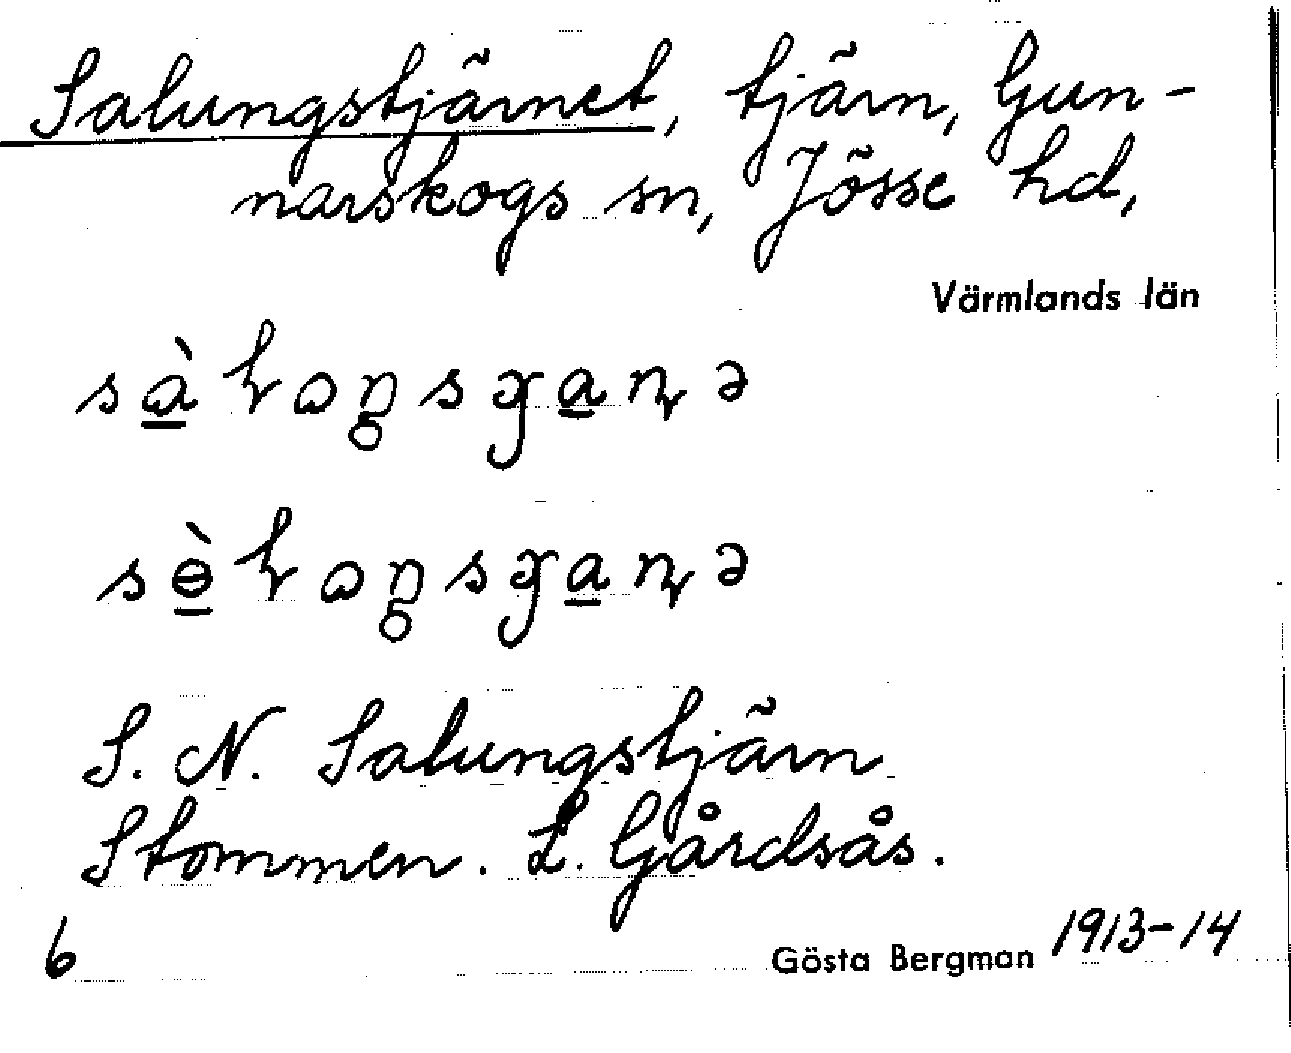 Salungstjärnet, tjärn, Gun-
narskogs sn, Jösse hd,
Värmlands län
S. N. Salungstjärn
Stommen. L. Gårdsås.
6
Gösta Bergman 1913-14